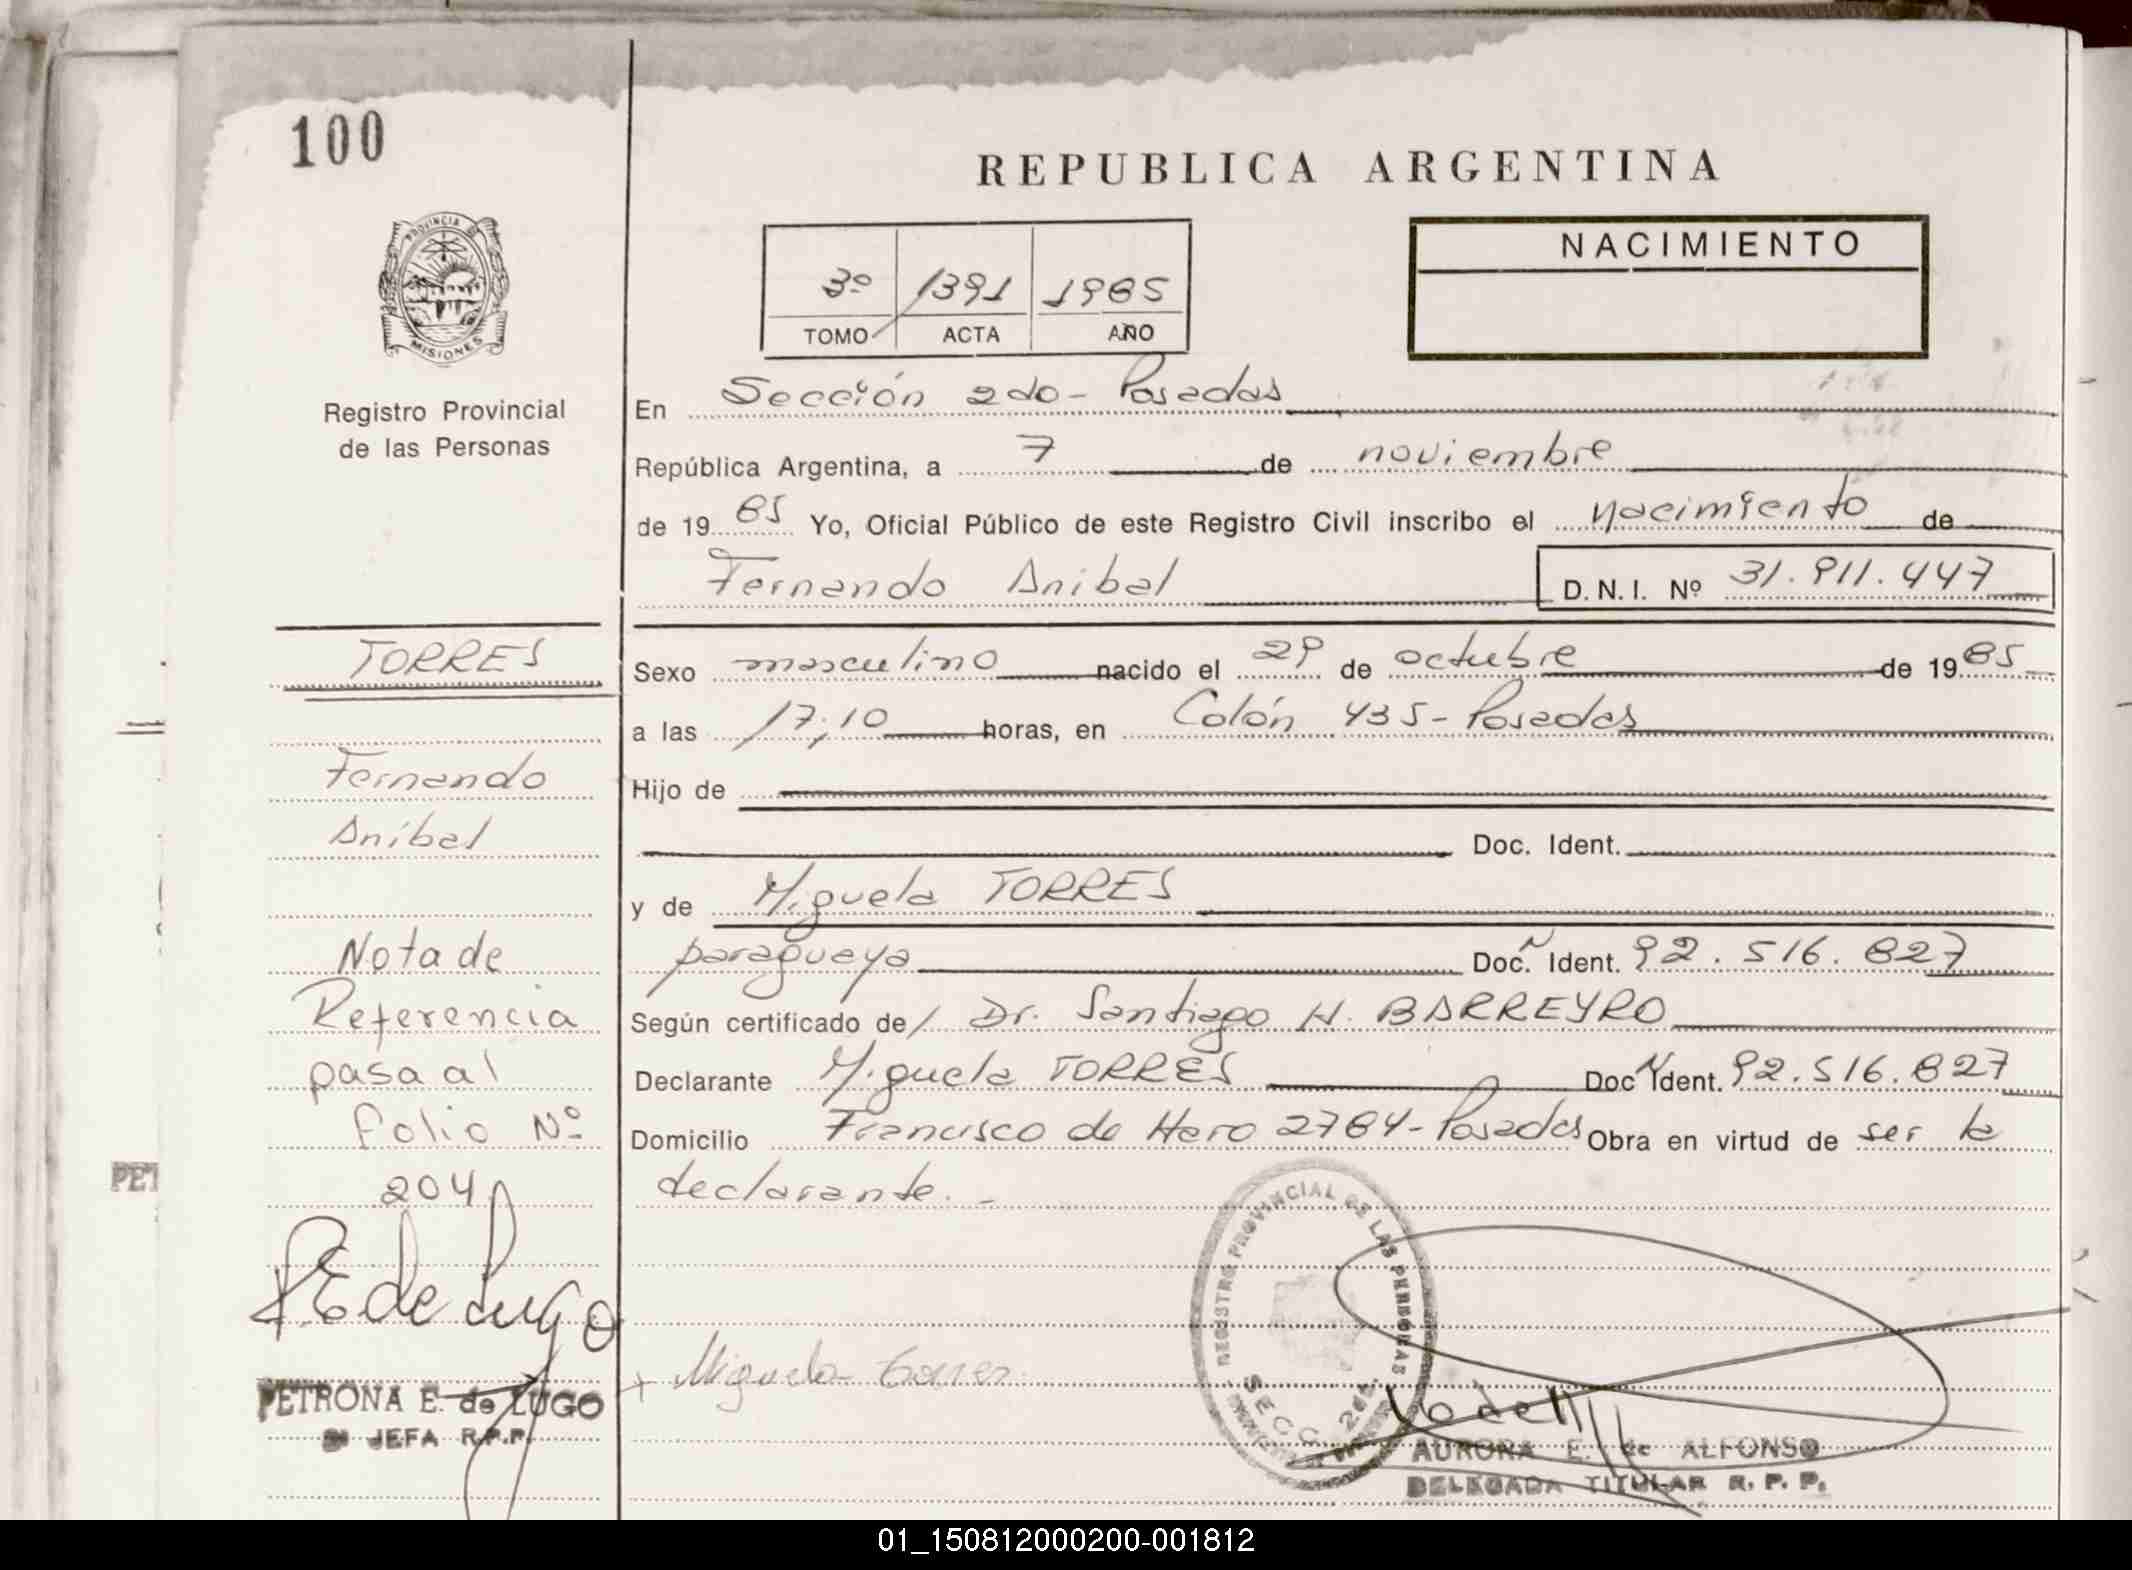 100
REPUBLICA ARGENTINA
PROVINCIA DE
MISIONES
Registro Provincial
de las Personas
3º 1391 1985
TOMO ACTA AÑO
NACIMIENTO
En Sección 2da- Posadas
República Argentina, a 7 de noviembre
de 19 85 Yo, Oficial Público de este Registro Civil inscribo el nacimiento de
Fernando Anibal D.N.I. Nº 31.911.447
TORRES
Sexo masculino nacido el 29 de octubre de 19 85
a las 17,10 horas, en Colón 435- Posadas
Fernando
Hijo de
Aníbal
Doc. Ident.
y de Miguela TORRES
Nota de
paraguaya Doc. Ident. 92.516.827
Referencia
Según certificado de/ Dr. Santiago H. BARREYRO
pasa al
Declarante Miguela TORRES Doc Ident. 92.516.827
folio Nº
Domicilio Francisco de Haro 2784- Posadas Obra en virtud de ser la
204
declarante.-
P.E de Lugo
REGISTRO PROVINCIAL DE LAS PERSONAS
SECC. 2da.
+ Miguela Torres
PETRONA E. de LUGO
JEFA R.P.P.
AURORA E. de ALFONSO
DELEGADA TITULAR R. P. P.
PET
01_150812000200-001812